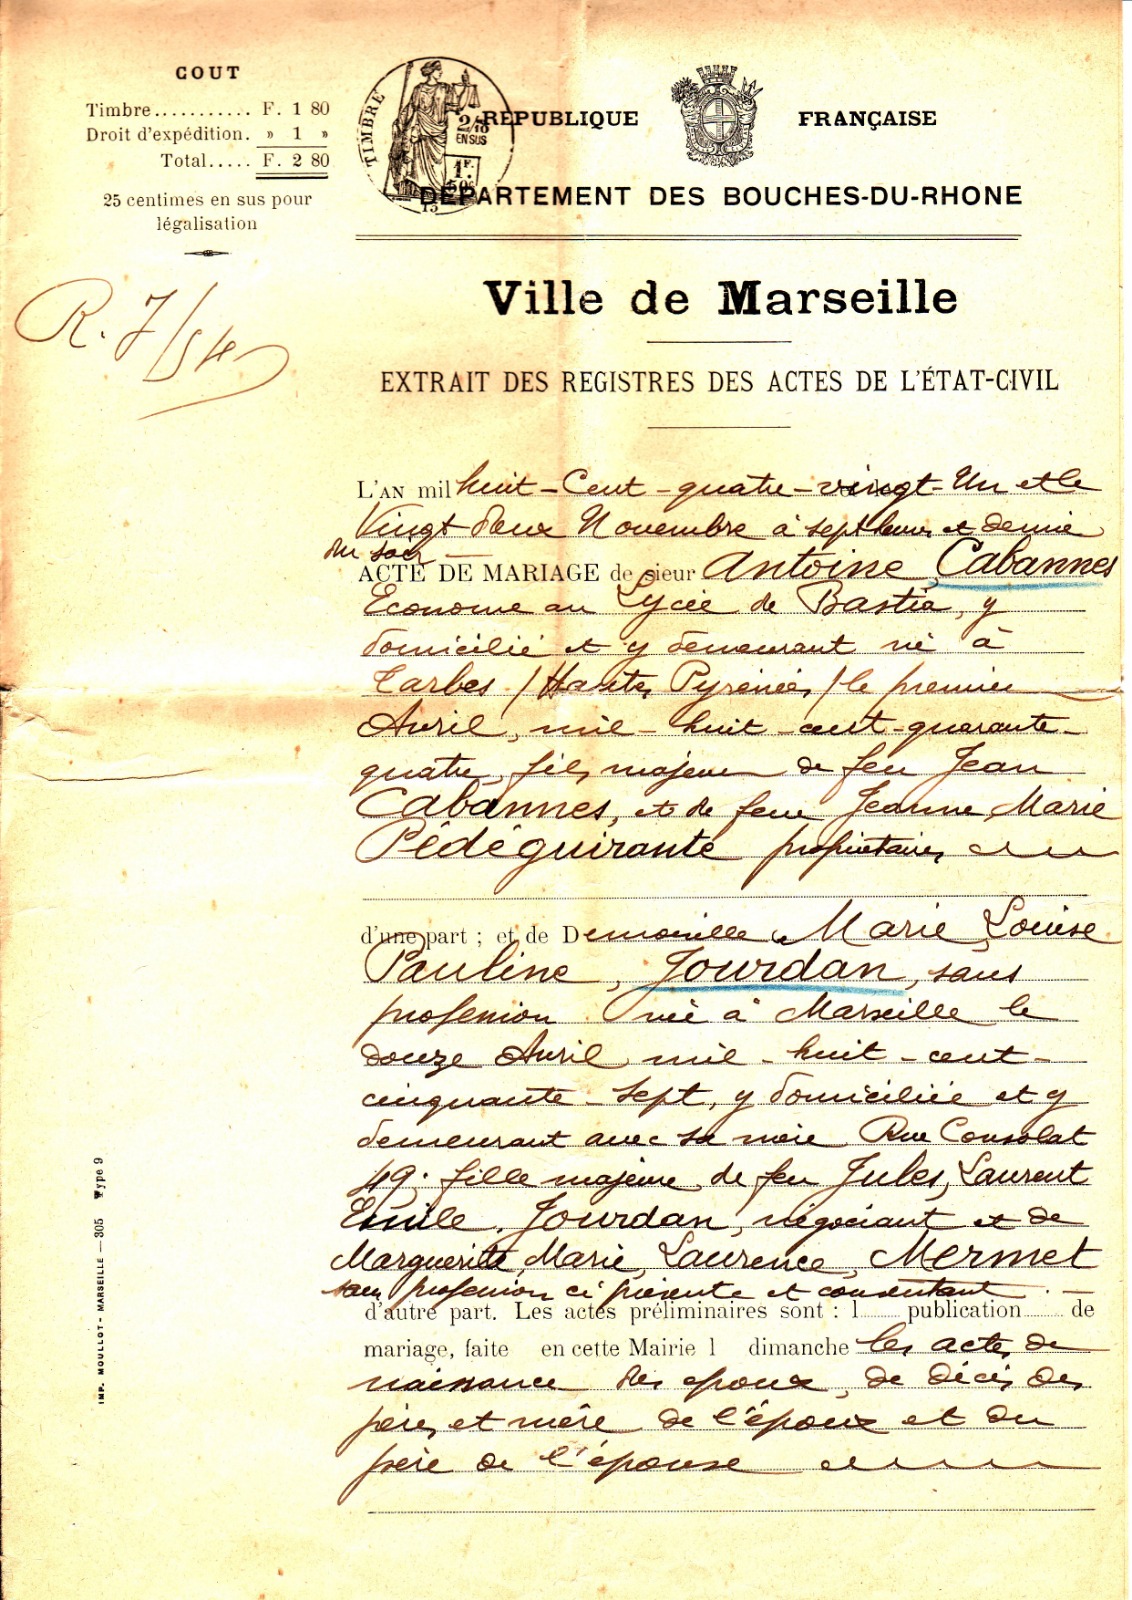 COUT
Timbre........... F. 1 80
Droit d'expédition. » 1 »
Total..... F. 2 80
25 centimes en sus pour
légalisation
R. 7/54
TIMBRE
2/10
EN SUS
1F.
50c
13
RÉPUBLIQUE FRANÇAISE
DÉPARTEMENT DES BOUCHES-DU-RHONE
Ville de Marseille
EXTRAIT DES REGISTRES DES ACTES DE L'ÉTAT-CIVIL
L'AN mil huit-Cent-quatre-vingt-Un et le
Vingt deux Novembre à sept heures et demie
du soir —
ACTE DE MARIAGE de sieur Antoine, Cabannes
Econome au Lycée de Bastia, y
domicilié et y demeurant né à
Tarbes / Hautes Pyrénées / le premier
Avril, mil-huit-cent-quarante-
quatre, fils majeur de feu Jean
Cabannes, et de feue Jeanne, Marie
Pédéguirante propriétaires
d'une part ; et de Demoiselle Marie Louise
Pauline, Jourdan, sans
profession née à Marseille le
douze Avril mil-huit-cent-
cinquante-sept, y domiciliée et y
demeurant avec sa mère Rue Consolat
49. fille majeure de feu Jules, Laurent
Emile, Jourdan, négociant et de
Marguerite, Marie, Laurence, Mermet
sans profession ci présente et consentant
d'autre part. Les actes préliminaires sont : l publication de
mariage, faite en cette Mairie l dimanche les actes de
naissance des epoux, de décès des
père et mère de l'époux et du
père de l'épouse
IMP. MOULLOT - MARSEILLE — 305 Type 9